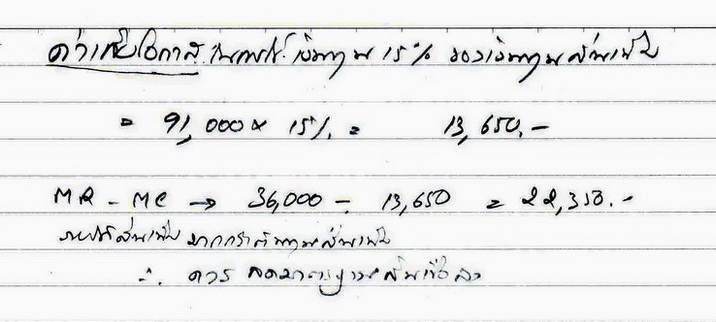 ค่าเสียโอกาส ในการใช้ เงินทุน 15% ของเงินทุนส่วนเพิ่ม
= 91,000 x 15% = 13,650.-
MR - MC → 36,000 - 13,650 = 22,350.-
รายได้ส่วนเพิ่ม มากกว่าต้นทุนส่วนเพิ่ม
∴ ควร ลดมาตรฐานสินเชื่อลง